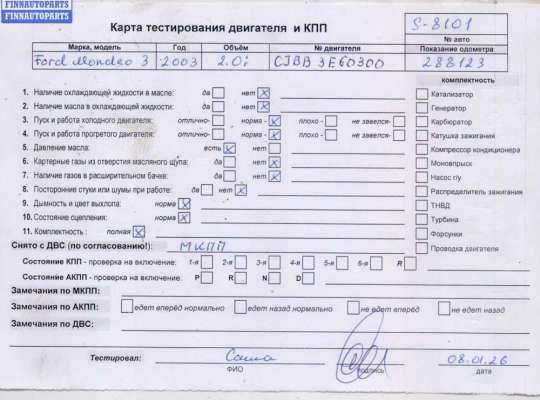 FINNAUTOPARTS
FINNAUTOPARTS
Карта тестирования двигателя и КПП
S-8101
№ авто
Марка, модель Год Объём № двигателя Показание одометра
Ford Mondeo 3 2003 2.0i CJBB 3E60300 288123
комплектность
1. Наличие охлаждающей жидкости в масле: да нет X
2. Наличие масла в охлаждающей жидкости: да нет X
3. Пуск и работа холодного двигателя: отлично- норма - X плохо - не завелся-
4. Пуск и работа прогретого двигателя: отлично- норма - X плохо - не завелся-
5. Давление масла: есть X нет
6. Картерные газы из отверстия масляного щупа: да нет X
7. Наличие газов в расширительном бачке: да нет X
8. Посторонние стуки или шумы при работе: да нет X
9. Дымность и цвет выхлопа: норма X
10. Состояние сцепления: норма X
11. Комплектность : полная X
Катализатор
Генератор
Карбюратор
Катушка зажигания
Компрессор кондиционера
Моновпрыск
Насос г/у
Распределитель зажигания
ТНВД
Турбина
Форсунки
Проводка двигателя
Снято с ДВС (по согласованию!): МКПП
Состояние КПП - проверка на включение: 1-я 2-я 3-я 4-я 5-я 6-я R
Состояние АКПП - проверка на включение: P R N D
Замечания по МКПП:
Замечания по АКПП: едет вперёд нормально едет назад нормально не едет вперёд не едет назад
Замечания по ДВС:
Тестировал: Саша 08.01.26
ФИО подпись дата